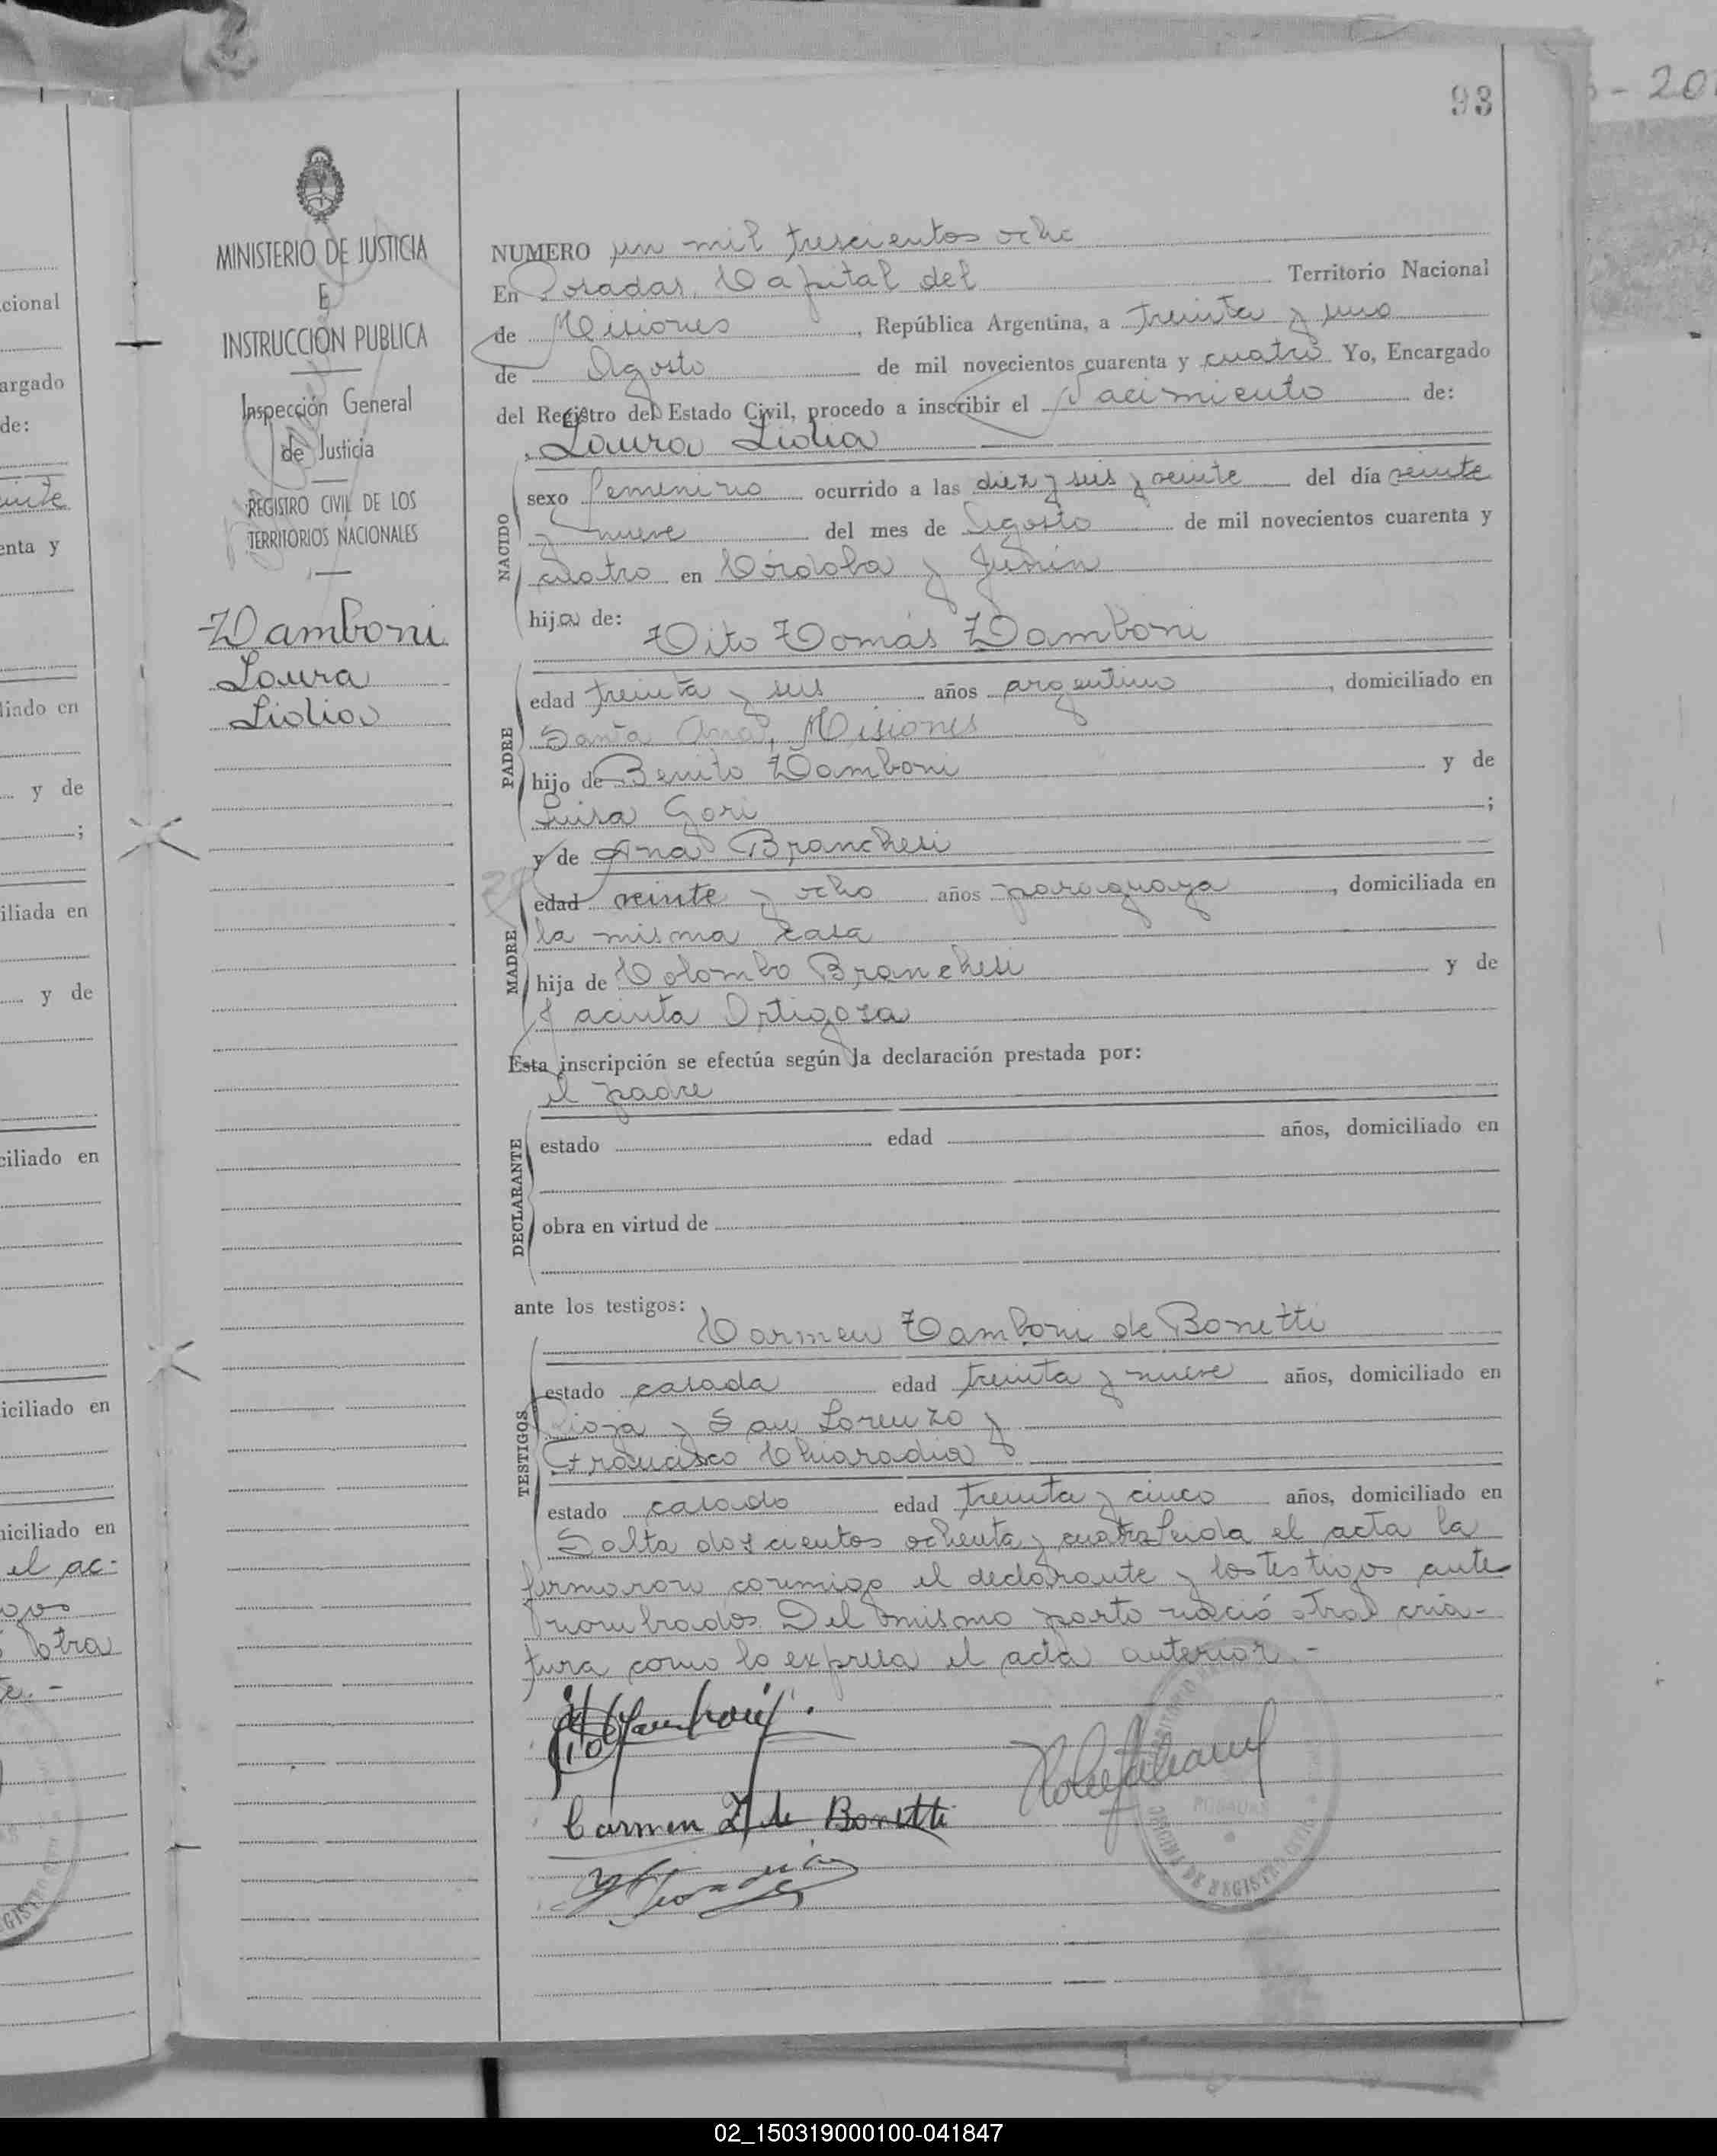 93
MINISTERIO DE JUSTICIA
E
INSTRUCCION PUBLICA
Inspección General
de Justicia
REGISTRO CIVIL DE LOS
TERRITORIOS NACIONALES
Zamboni
Laura
Lidia
NUMERO un mil trescientos ocho
En Posadas, Capital del Territorio Nacional
de Misiones, República Argentina, a treinta y uno
de Agosto de mil novecientos cuarenta y cuatro Yo, Encargado
del Registro del Estado Civil, procedo a inscribir el Nacimiento de:
Laura Lidia
NACIDO
sexo femenino ocurrido a las diez y seis y veinte del día veinte
y nueve del mes de Agosto de mil novecientos cuarenta y
cuatro en Córdoba y Junín
hija de:
Tito Tomás Zamboni
PADRE
edad treinta y seis años argentino, domiciliado en
Santa Ana, Misiones
hijo de Benito Zamboni y de
Luisa Gori;
y de Ana Branchesi
MADRE
edad veinte y ocho años paraguaya, domiciliada en
la misma casa
hija de Colombo Branchesi y de
Jacinta Ortigoza
Esta inscripción se efectúa según la declaración prestada por:
el padre
DECLARANTE
estado edad años, domiciliado en
obra en virtud de
ante los testigos:
Carmen Zamboni de Bonetti
TESTIGOS
estado casada edad treinta y nueve años, domiciliado en
Rioja y San Lorenzo y
Francisco Chiaradia
estado casado edad treinta y cinco años, domiciliado en
Salta doscientos ochenta y cuatro Leida el acta la
firmaron conmigo el declarante y los testigos ante
nombrados. Del mismo parto nació otra cria-
tura como lo expresa el acta anterior.-
Carmen Z de Bonetti
POSADAS
02_150319000100-041847